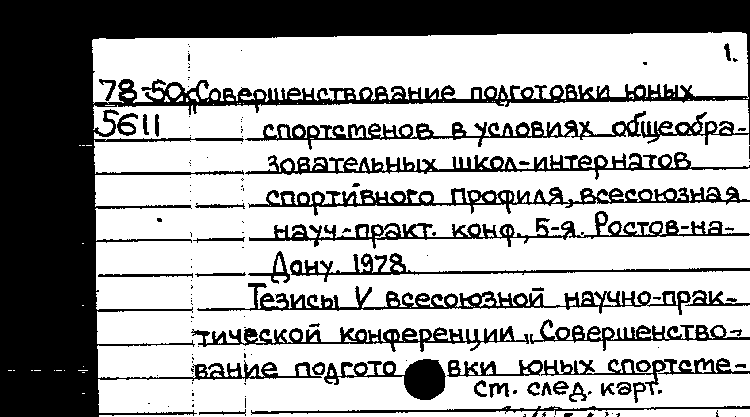 1.
78-50к "Совершенствование подготовки юных
5611 спортстенов в условиях общеобра-
зовательных школ-интернатов
спортивного профиля, всесоюзная
науч.-практ. конф., 5-я. Ростов-на-
Дону. 1978.
Тезисы V всесоюзной научно-прак-
тической конференции „Совершенство-
вание подготовки юных спортсме-
см. след. карт.